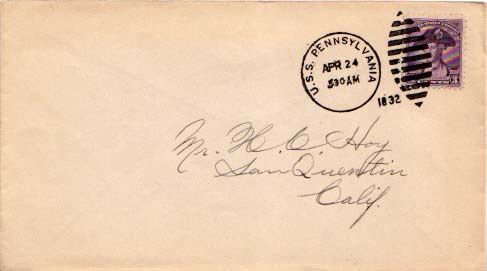 U.S.S. PENNSYLVANIA
APR 24
530 AM
1832
Mr. H. O. Hoy
San Quentin
Calif.
3